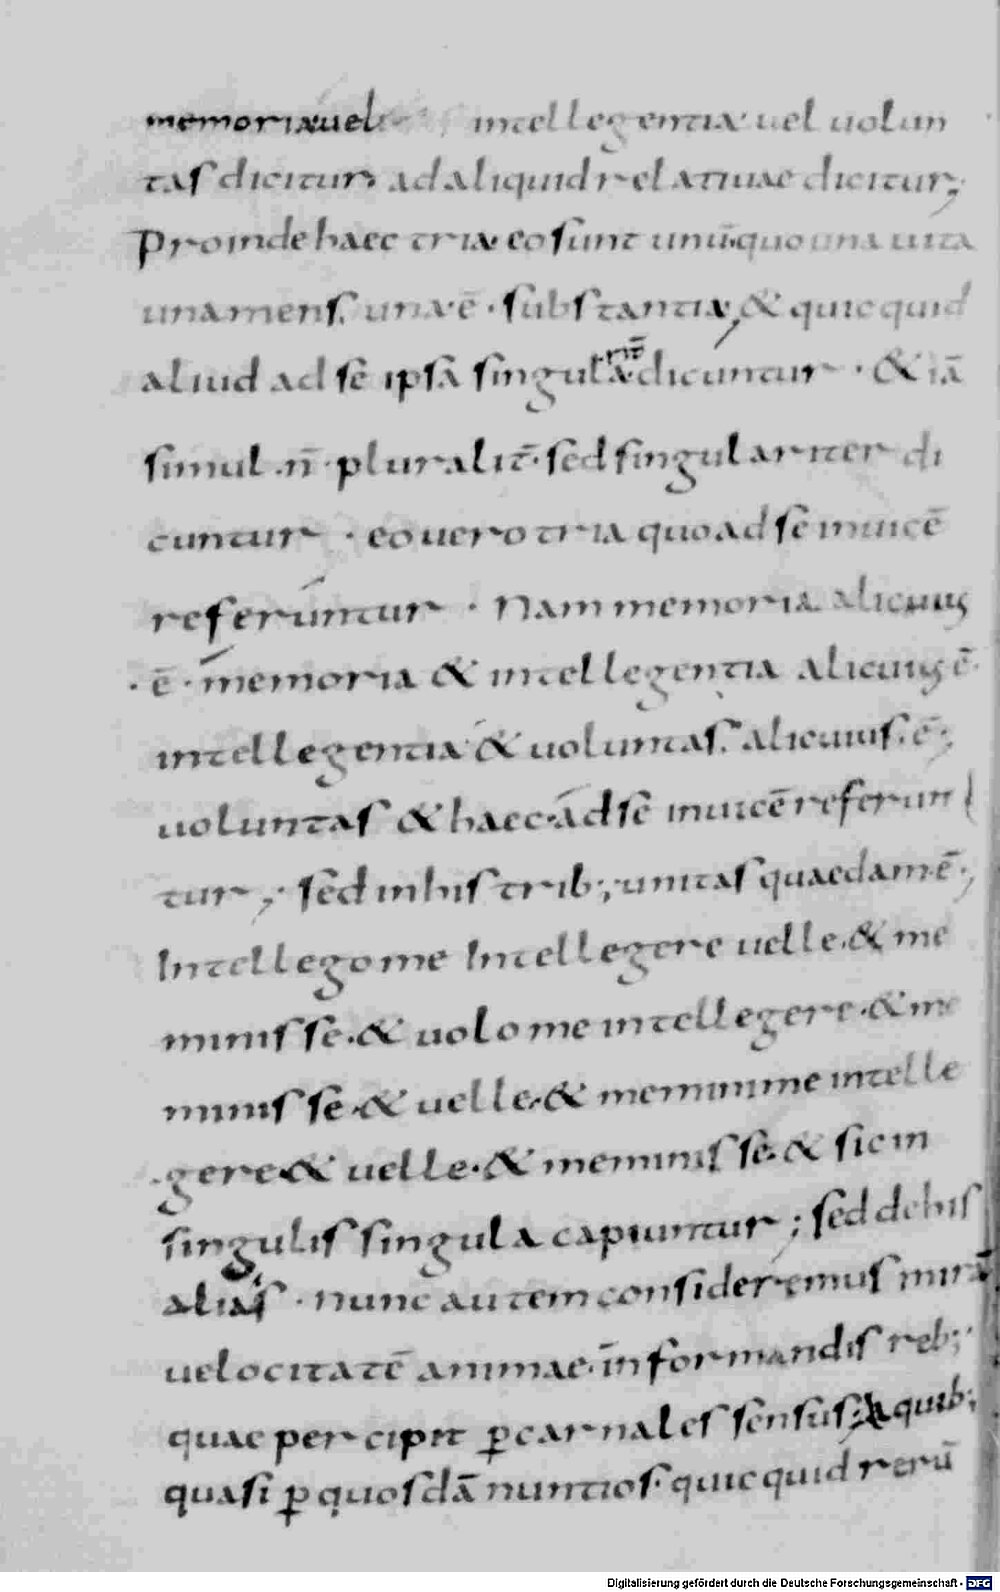 memoria uel intellegentia uel uolun
tas dicitur, ad aliquid relatiuae dicitur;
Proinde haec tria eo sunt unū. quo una uita
una mens. una ē. substantia, & quicquid
aliud ad se ipsā singula riť dicuntur. & iā
simul. n̄. pluraliť. sed singulariter di
cuntur. eo uero tria quo ad se inuicē
referuntur. Nam memoria alicuius
.ē. memoria & intellegentia alicuius ē.
intellegentia & uoluntas. alicuius. ē;
uoluntas & haec. ad se inuicē referun
tur; sed in his trib; unitas quaedam ē;
Intellego me Intellegere uelle. & me
minisse. & uolo me intellegere. & me
minisse. & uelle. & memini me intelle
gere. & uelle. & meminisse. & sic in
singulis singula capiuntur; sed de his
alias. nunc autem consideremus mirā
uelocitatē animae. in formandis reb;
quae percipit ꝑ carnales sensus; A quib;
quasi ꝑ quosdā nuntios. quicquid rerū
Digitalisierung gefördert durch die Deutsche Forschungsgemeinschaft - DFG